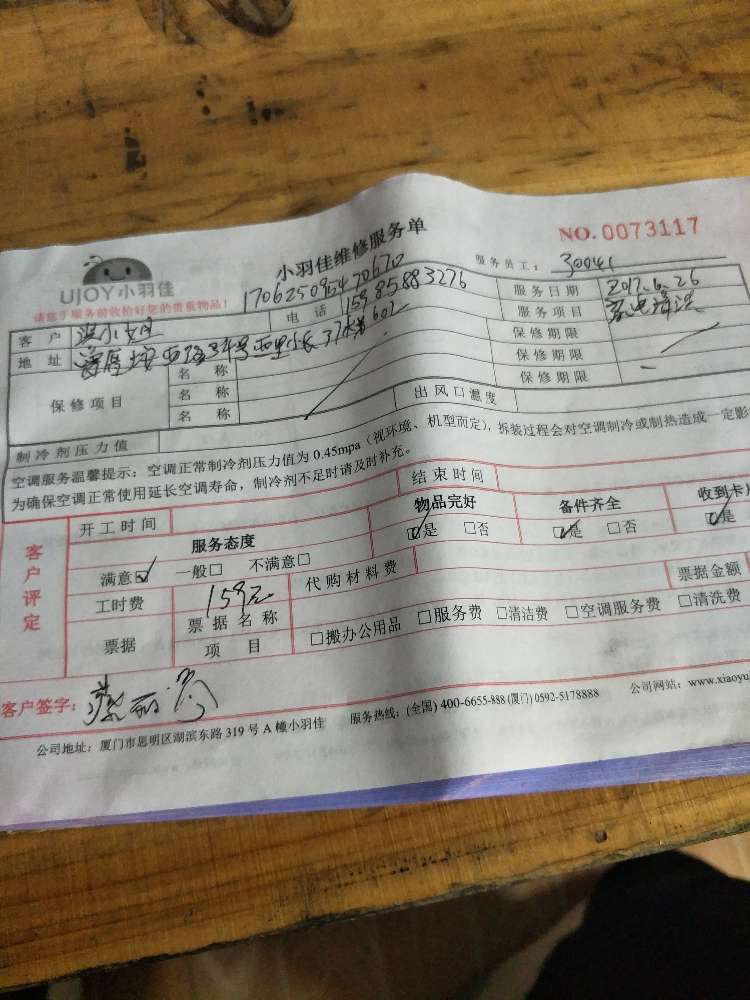 UJOY小羽佳
小羽佳维修服务单
NO.0073117
请您于服务前收拾好您的贵重物品!
170625095470670
服务员工: 30041
客户 小 电话 15985883276 服务日期 2017.6.26
地址 34号 37 602 服务项目 家电清洗
保修项目 名称 保修期限
名称 保修期限
名称 保修期限
制冷剂压力值 出风口温度
空调服务温馨提示:空调正常制冷剂压力值为 0.45mpa(视环境、机型而定),拆装过程会对空调制冷或制热造成一定影
为确保空调正常使用延长空调寿命,制冷剂不足时请及时补充。
客户评定
开工时间 结束时间
服务态度 物品完好 备件齐全 收到卡
满意☑ 一般□ 不满意□ ☑是 □否 ☑是 □否 ☑是
工时费 159元 代购材料费 票据金额
票据 票据名称 □搬办公用品 □服务费 □清洁费 □空调服务费 □清洗费
项目
客户签字:
公司地址:厦门市思明区湖滨东路 319 号 A 幢小羽佳 服务热线:(全国) 400-6655-888 (厦门) 0592-5178888 公司网站:www.xiaoyu